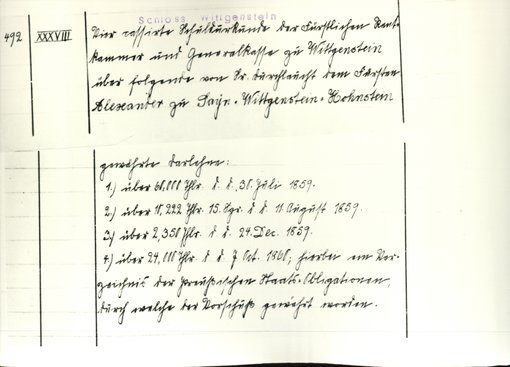 Schloss Wittgenstein
492 XXXVIII Vier cassirte Schuldurkunde der Fürstlichen Rent-
kammer und Generalkasse zu Wittgenstein
über folgende von Sr. Durchlaucht dem Fürsten
Alexander zu Sayn-Wittgenstein-Hohnstein
gewährte Darlehne:
1.) über 60,000 Thlr. d. d. 30. Juli 1859.
2.) über 10,222 Thlr. 15. Sgr. d. d. 11. August 1859.
3.) über 2,350 Thlr. d. d. 24. Dec. 1859.
4.) über 24,000 Thlr. d. d. 7 Oct. 1860; hierbei ein Ver-
zeichnis der Preußischen Staats-Obligationen,
durch welche der Vorschuß gewährt worden.